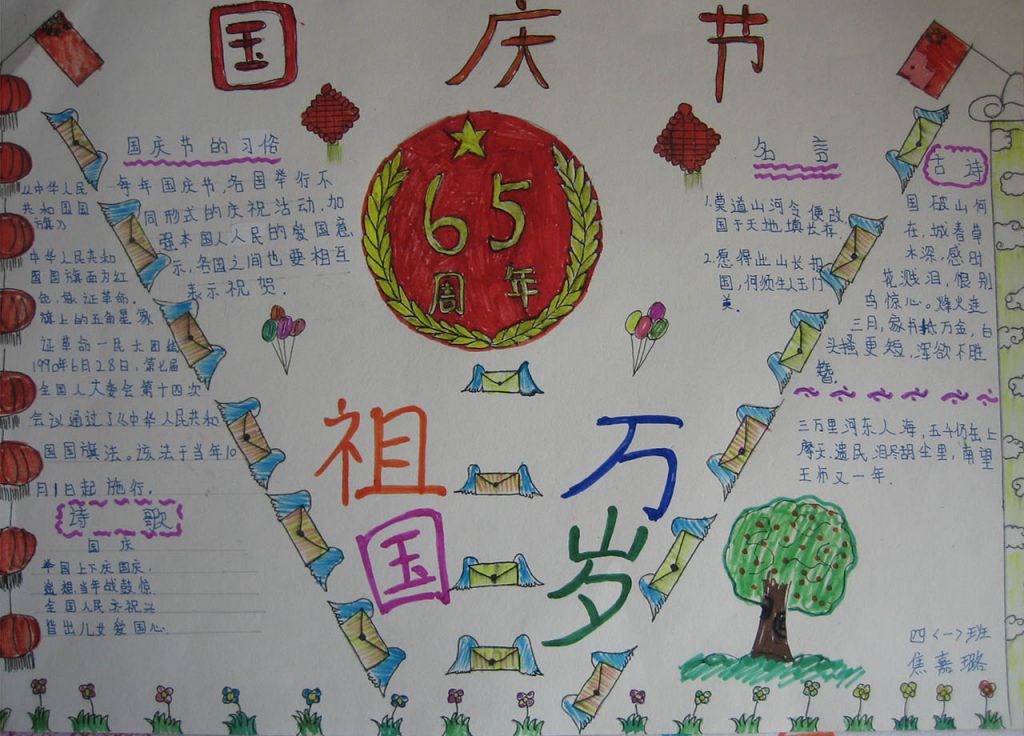 国庆节
国庆节的习俗
每年国庆节,各国举行不
同形式的庆祝活动,加
强本国人人民的爱国意
示,各国之间也要相互
表示祝贺.
中华人民
共和国国
旗
中华人民共和
国国旗面为红
色,象征革命.
旗上的五角星象
征革命人民大团结
1990年6月28日,第七届
全国人大委会第十四次
会议通过了《中华人民共和
国国旗法。该法于当年10
月1日起施行.
诗歌
国庆
举国上下庆国庆,
当年战鼓惊
全国人民齐祝兴
皆出儿女爱国心.
65
周年
祖国
万岁
名言
1.莫道山河令便改
国于天地,填长存
2.愿得此山长报
国,何须生人玉门
关.
古诗
国破山河
在,城春草
木深,感时
花溅泪,恨别
鸟惊心。烽火连
三月,家书抵万金,白
头搔更短,浑欲不胜
簪.
三万里河东人海,五千仞岳上
摩天.遗民泪尽胡尘里,南望
王师又一年.
四<一>班
焦嘉璐